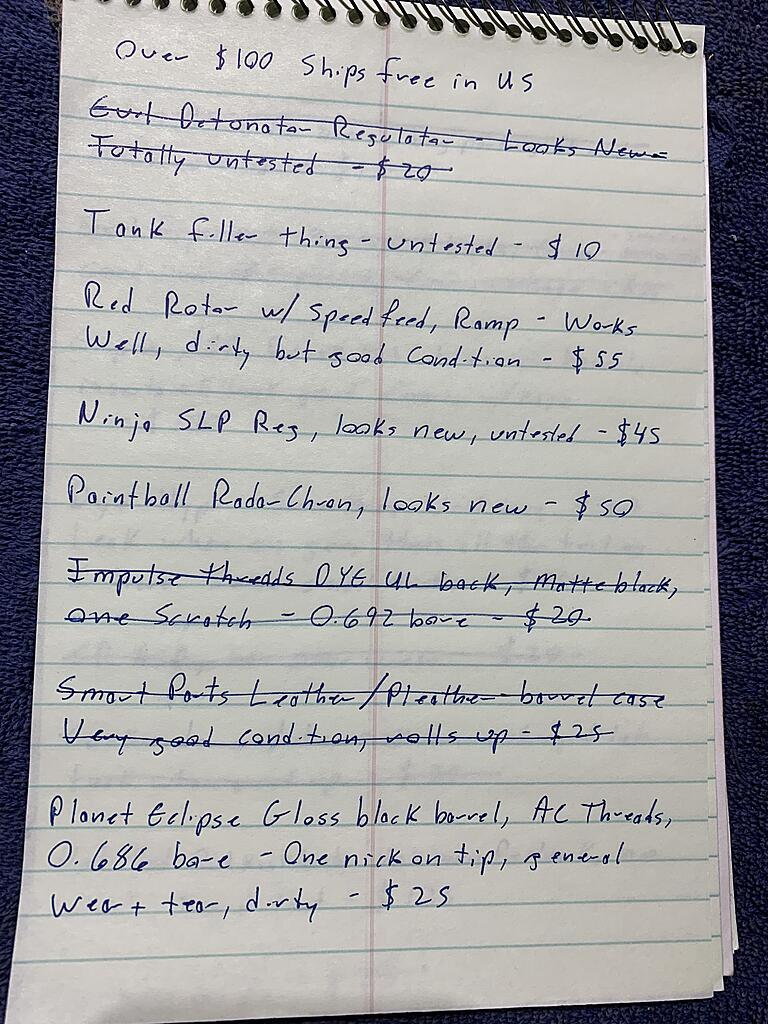 Over $100 Ships free in US
Evil Detonator Regulator - Looks New -
Totally untested - $20
Tank filler thing - untested - $10
Red Rotor w/ Speed feed, Ramp - Works
Well, dirty but good Condition - $55
Ninja SLP Reg, looks new, untested - $45
Paintball Radar Chron, looks new - $50
Impulse threads DYE UL back, Matte black,
one Scratch - 0.692 bore - $20
Smart Parts Leather/Pleather barrel case
Very good condition, rolls up - $25
Planet Eclipse Gloss black barrel, AC Threads,
0.686 bore - One nick on tip, general
Wear + tear, dirty - $25